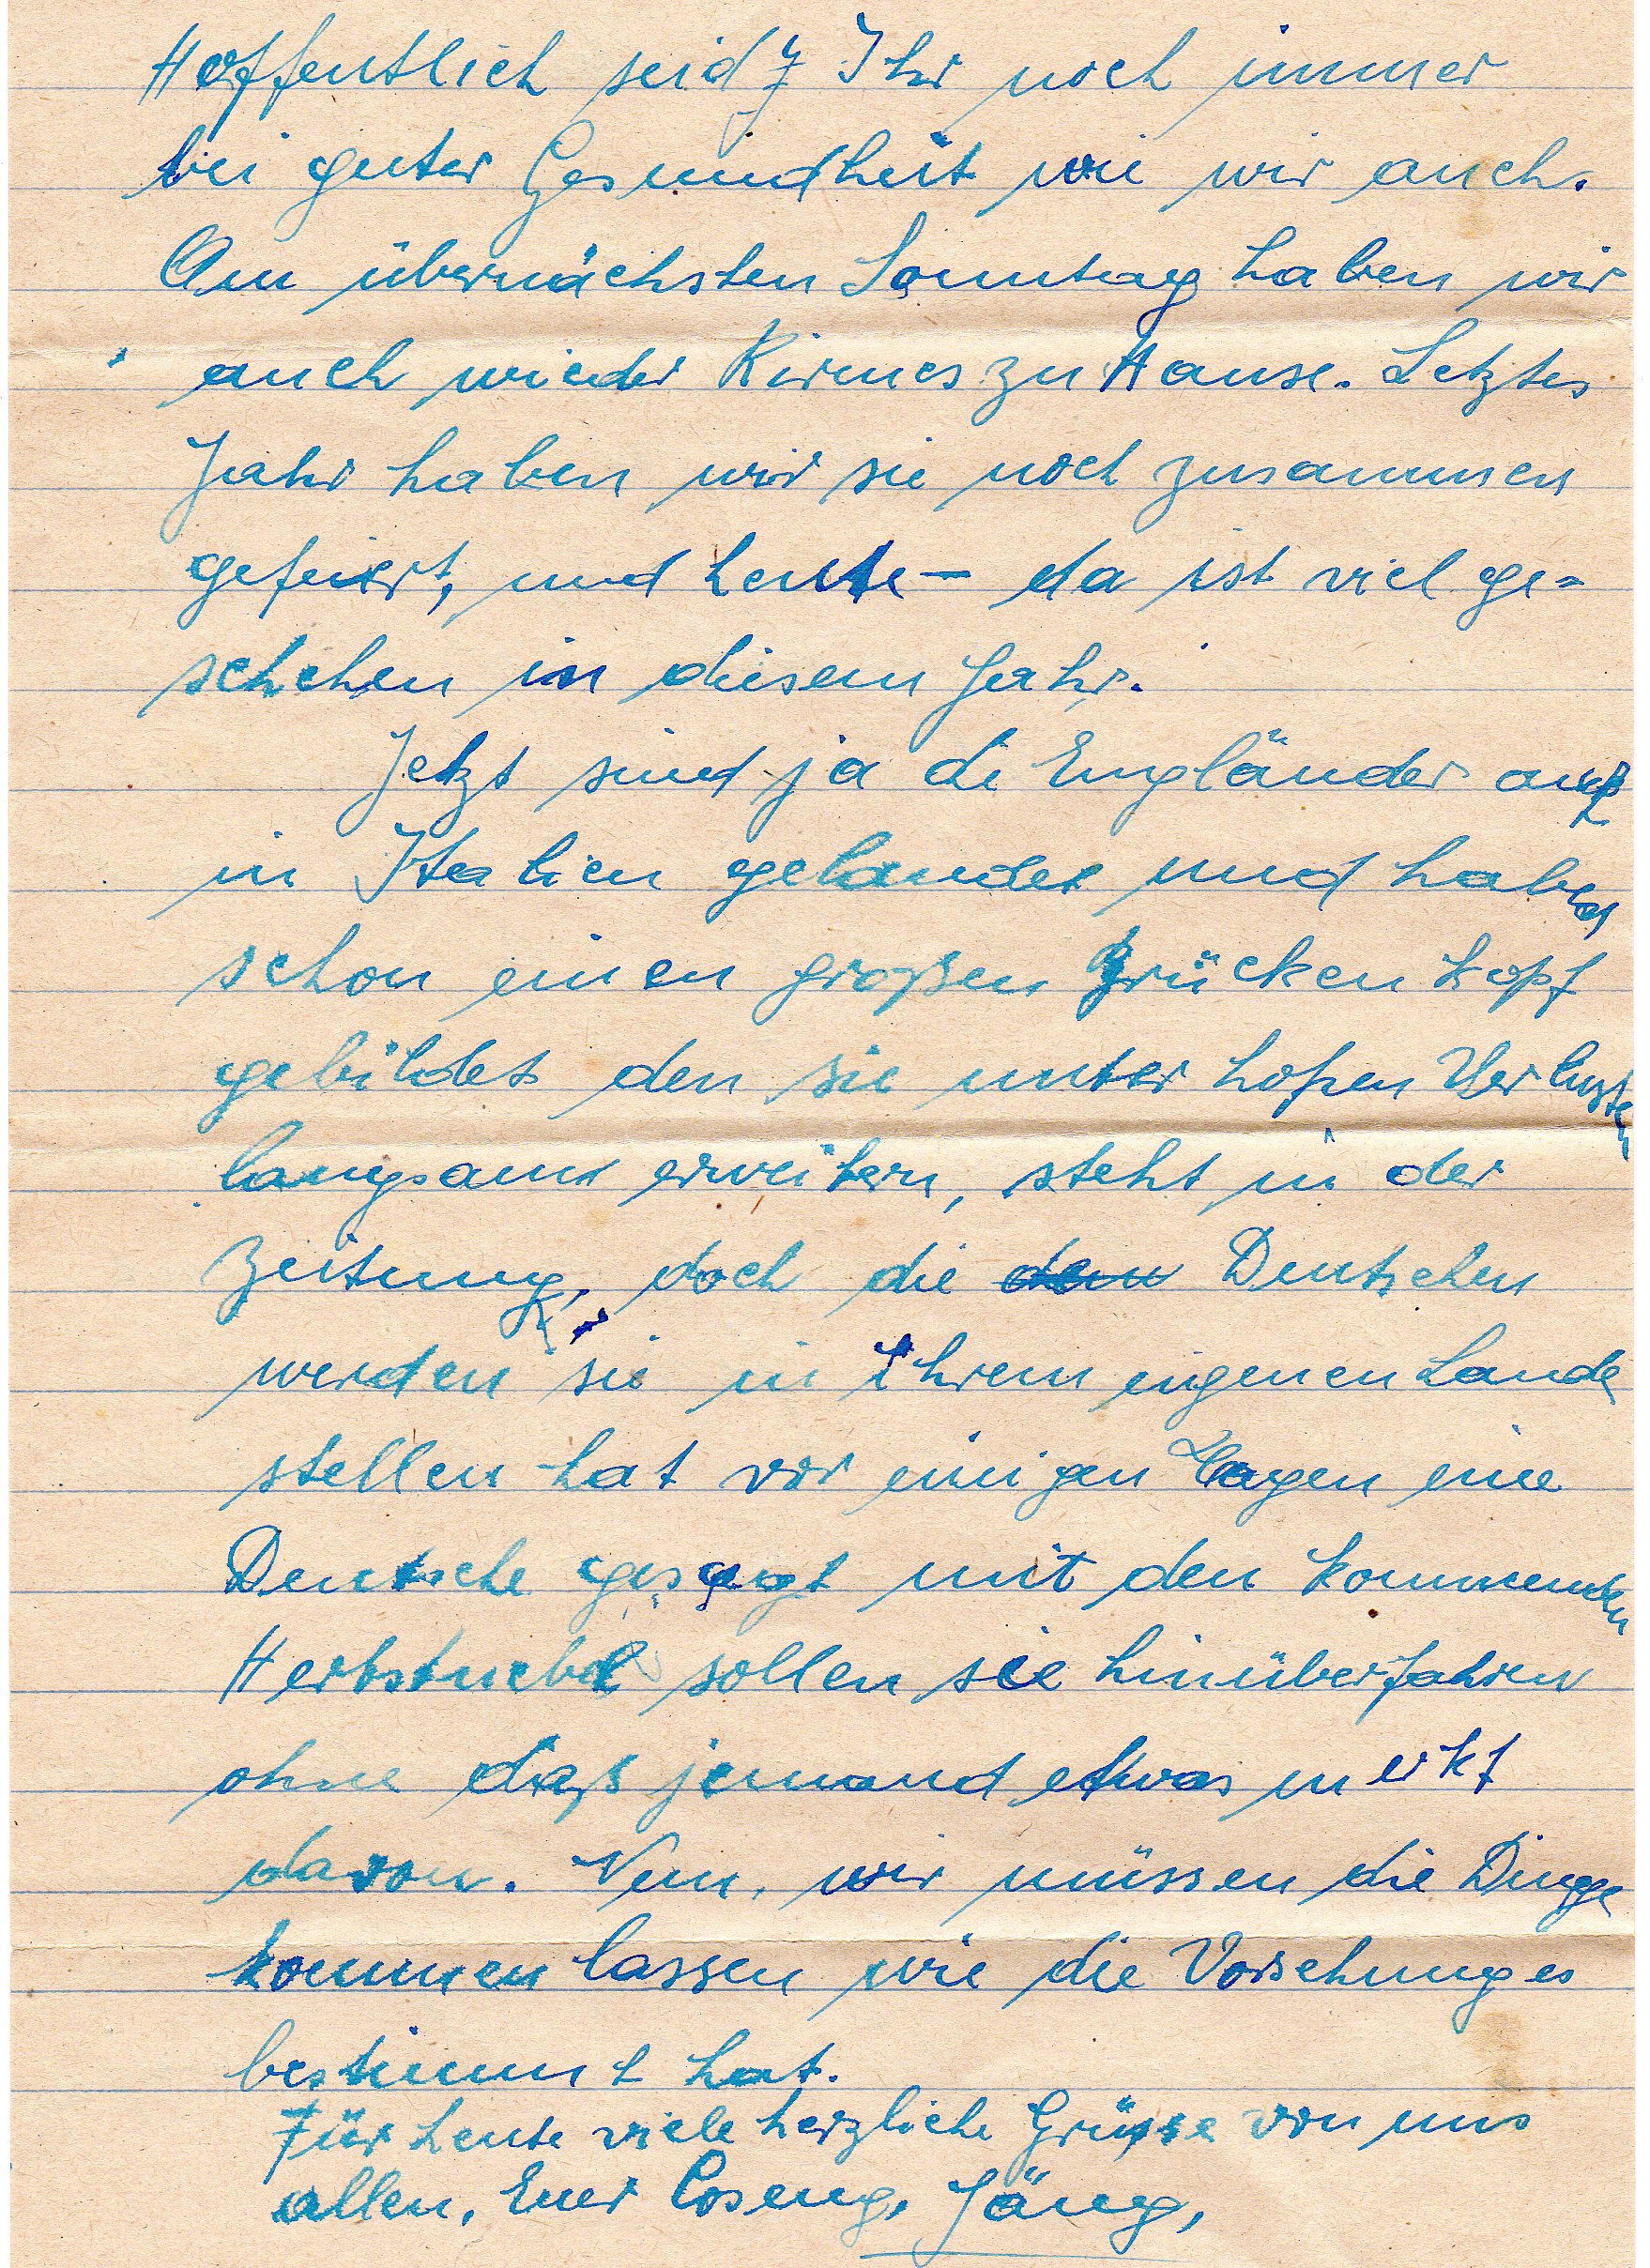 Hoffentlich seid Ihr noch immer
bei guter Gesundheit wie wir auch.
Am übernächsten Sonntag haben wir
auch wieder Kirmes zu Hause. Letztes
Jahr haben wir sie noch zusammen
gefeiert, und heute – da ist viel ge=
schehen in diesem Jahr.
Jetzt sind ja die Engländer auch
in Italien gelandet und haben
schon einen großen Brückenkopf
gebildet den sie unter hohen Verlusten
langsam erweitern, steht in der
Zeitung, doch die Deutschen
werden sie in ihrem eigenen Lande
stellen hat vor einigen Tagen eine
Deutsche gesagt mit den kommenden
Herbstnebel sollen sie hinüberfahren
ohne daß jemand etwas merkt
davon. Nun, wir müssen die Dinge
kommen lassen wie die Vorsehung es
bestimmt hat.
Für heute viele herzliche Grüsse von uns
allen. Euer Jäng,